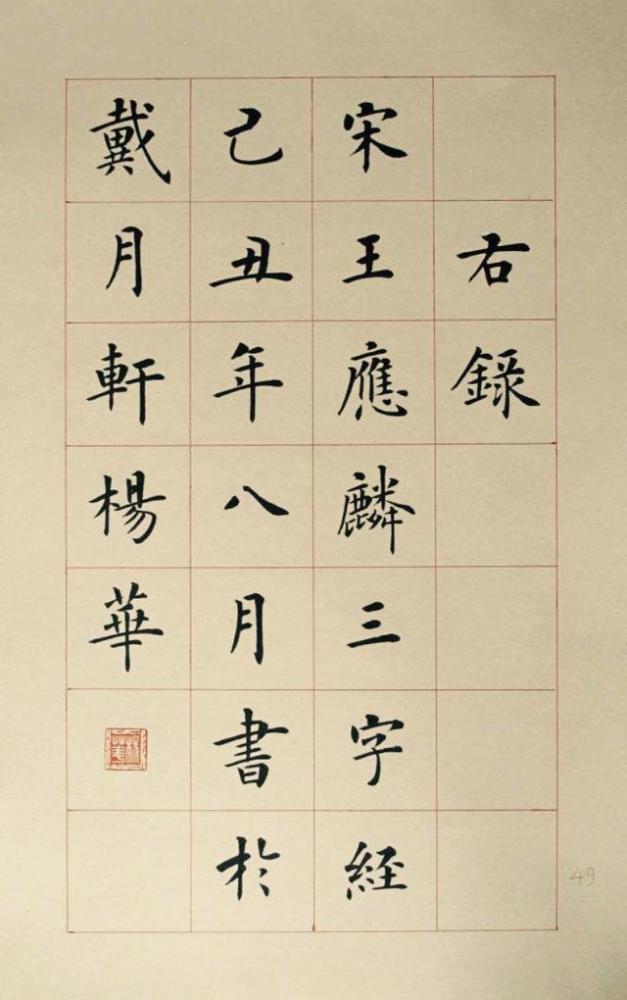 右錄
宋王應麟三字経
己丑年八月書於
戴月軒楊華
49